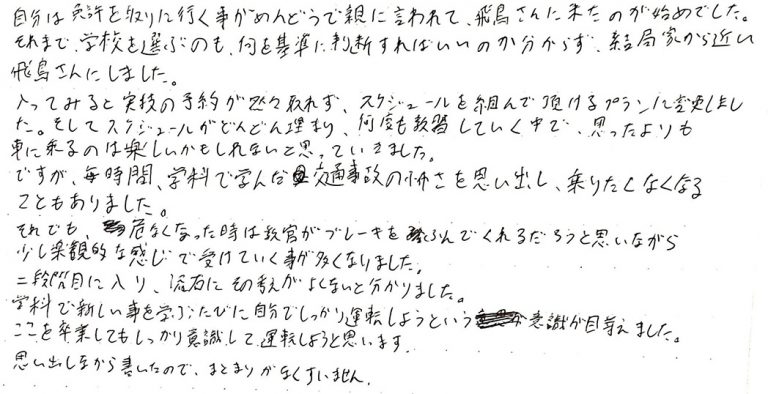 自分は免許を取りに行く事がめんどうで親に言われて、飛鳥さんに来たのが始めでした。
それまで、学校を選ぶのも、何を基準に判断すればいいのか分からず、結局家から近い
飛鳥さんにしました。
入ってみると実技の予約が 取れず、スケジュールを組んで頂けるプランに変更しまし
た。そしてスケジュールがどんどん埋まり、何度も教習していく中で、思ったよりも
車に乗るのは楽しいかもしれないと思っていきました。
ですが、毎時間、学科で学んだ交通事故の怖さを思い出し、乗りたくなくなる
こともありました。
それでも、危なくなった時は教官がブレーキをふんでくれるだろうと思いながら
少し楽観的な感じで受けていく事が多くなりました。
二段階目に入り、流石にその考えがよくないと分かりました。
学科で新しい事を学ぶたびに自分でしっかり運転しようという意識が目芽えました。
ここを卒業してもしっかり意識して運転しようと思います。
思い出しながら書いたので、まとまりがなくすいません。